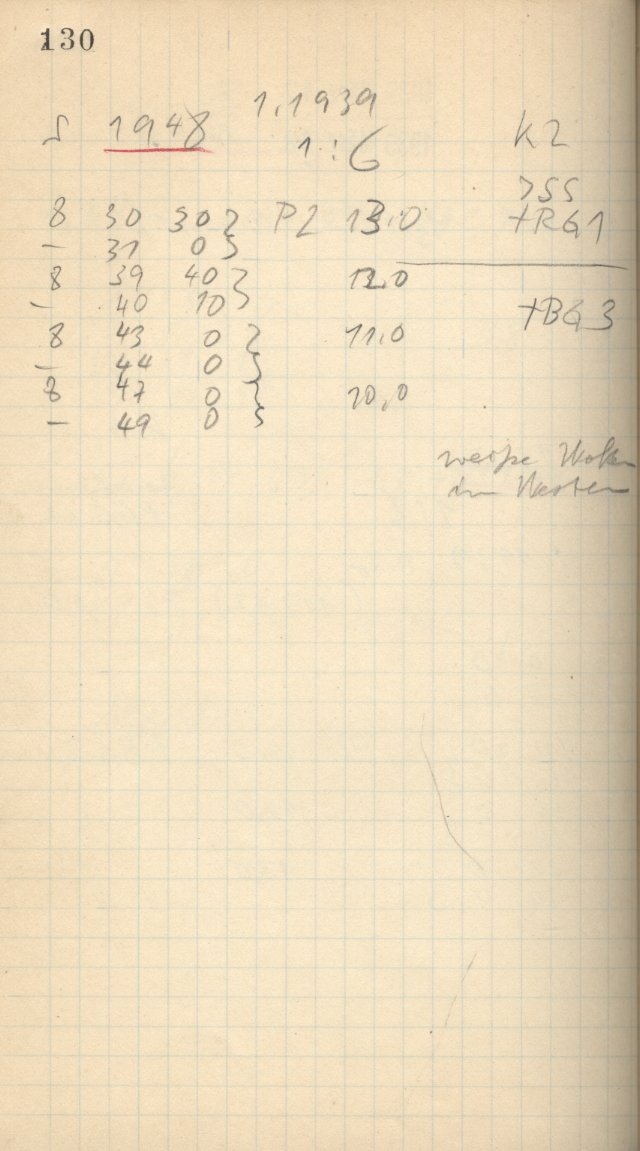 130
1.1939
S 1948 1:6 K2
755
8 30 30 } P2 13,0 +RG1
– 31 0 }
8 39 40 } 12,0
– 40 10 } +BG3
8 43 0 } 11,0
– 44 0 }
8 47 0 } 10,0
– 49 0 }
weiße Wolken
im Westen